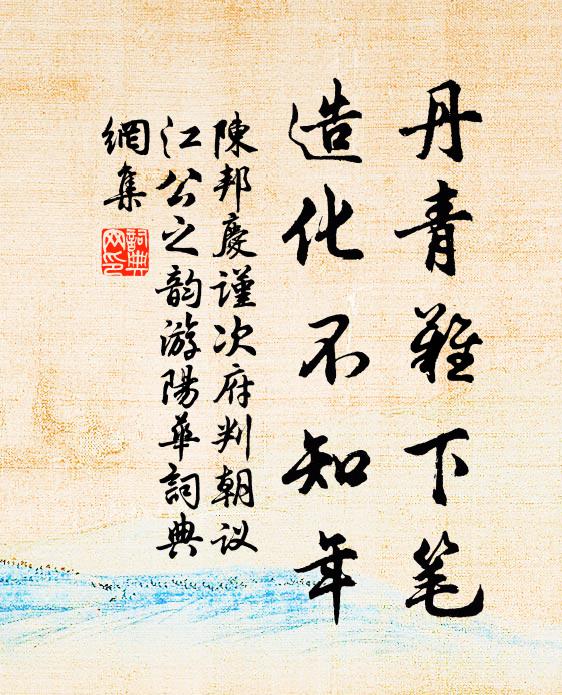 丹青難下笔
造化不知年
陳邦慶谨次府判朝议
江公之韵游陽華詞典
網集
詞典网印